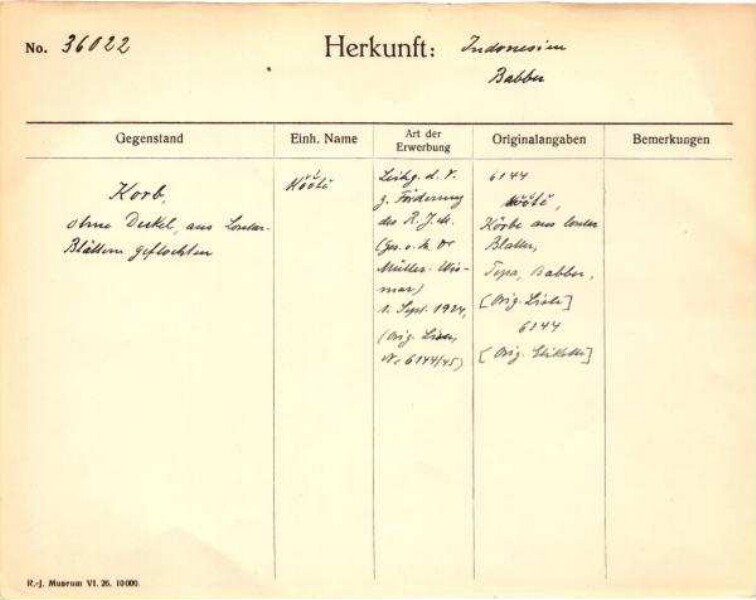 No. 36022
Herkunft: Indonesien
Babber
Gegenstand
Einh. Name
Art der Erwerbung
Originalangaben
Bemerkungen
Korb,
ohne Deckel, aus Lontar-
Blättern geflochten
Leihg. d. V.
z. Förderung
des R. J. M.
(Ges. v. H. Dr
Müller-Wis-
mar)
1. Sept. 1924,
(Orig. Listen,
Nr 6144/45)
6144
Körbe aus lontar
Blätter,
Tepa, Babber,
[Orig. Liste]
6144
[Orig. Etikette]
R.-J. Museum VI. 26. 10000.